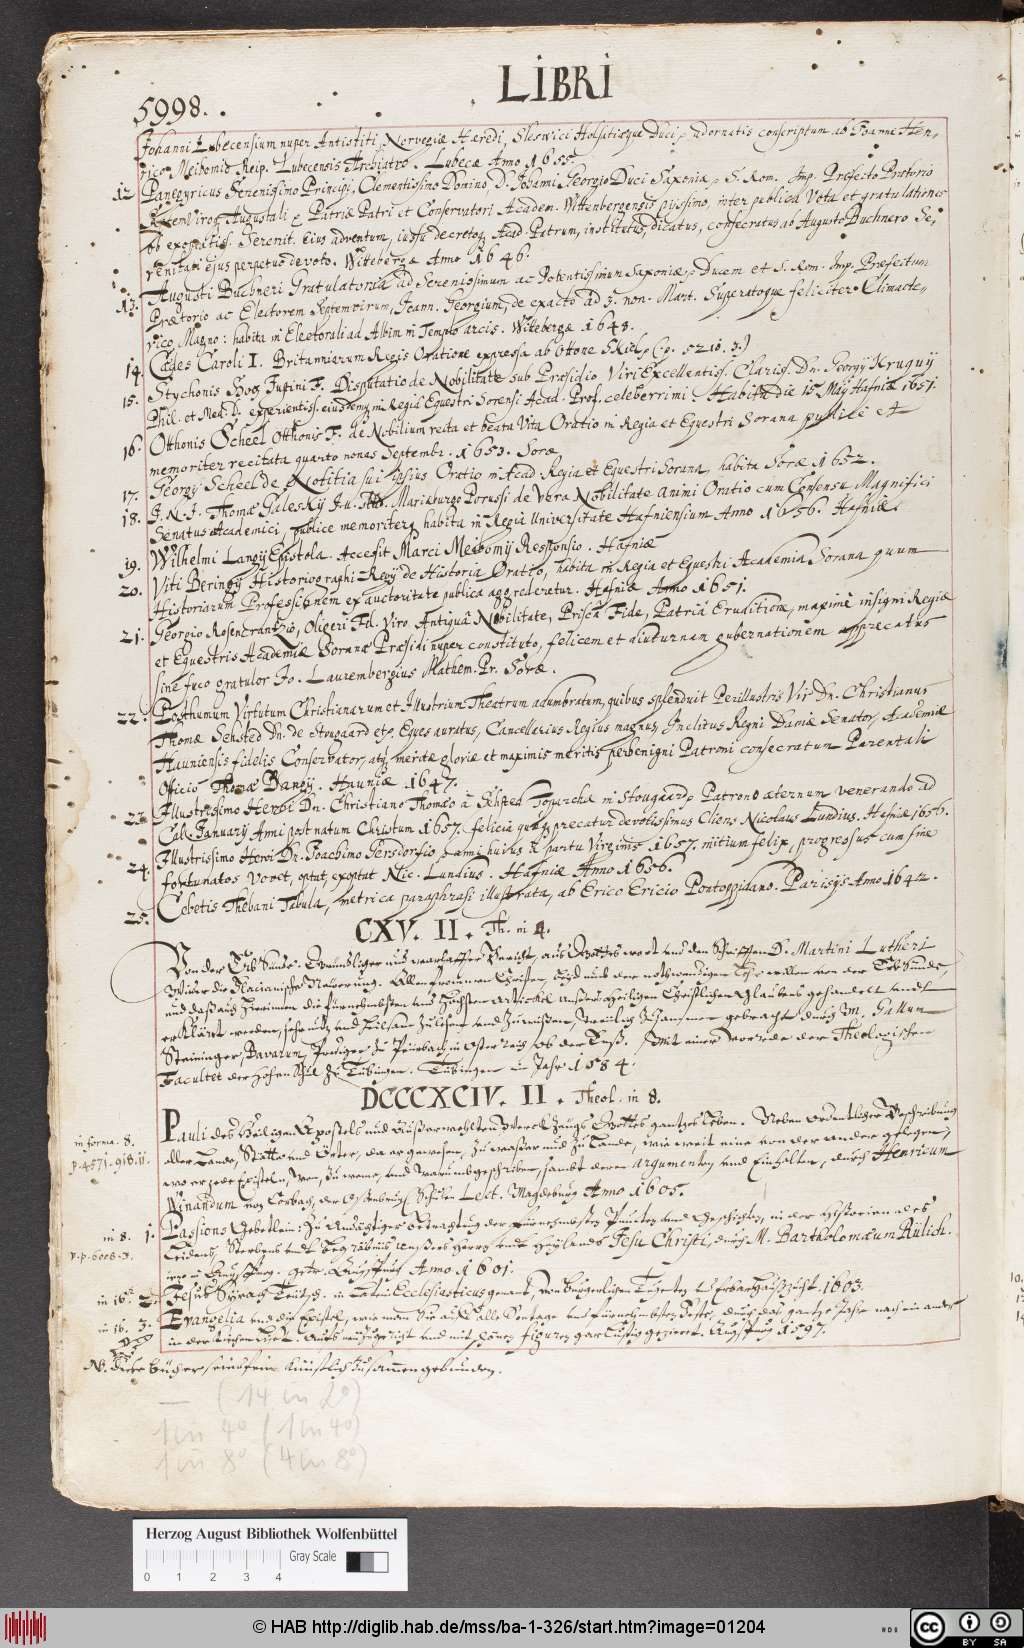 LIBRI
5998.
Johanni Lubecensium nuper Antistiti, Norvegiæ Hæredi, Sleswici Holsatiæque Duci, adornatis conscriptum ab Joanne Hen-
rico Meibomio Reip. Lubecensis Archiatro. Lubecæ Anno 1655.
12 Panegyricus Serenissimo Principi, Clementissimo Domino, D. Johanni Georgio Duci Saxoniæ, S. Rom. Imp. Præfecto Prætorio
Augustali Patriæ Patri et Conservatori Academ. Wittenbergensis piissimo, inter publica Vota et gratulationes
ob Serenit. Eius adventum, iussu decretoq Acad. Patrum, institutus, dicatus, consecratus ab Augusto Buchnero Se-
renitati ejus perpetuo devoto. Witebergæ Anno 1646.
13. Augusti Buchneri Gratulatoria ad Serenissimum ac Potentissimum Saxoniæ Ducem et S. Rom. Imp. Præfectum
Prætorio ac Electorem Septemvirum, Joann. Georgium, de exacto ad 3. non. Mart. Superatoque feliciter Climacte-
rico Magno: habita in Electorali ad Albim in Templo arcis. Wittebergæ 1648.
14. Cædes Caroli I. Britanniarum Regis Oratione expressa ab Ottone (p. 5210. 3.)
15. Stychonis Hog Justini F. Disputatio de Nobilitate sub Præsidio Viri Excellentiss. Clariss. Dn. Georgij Kruguij
Phil. et Med. D. experientiss. ejusdemq in Regia Equestri Sorensi Acad. Prof. celeberrimi Habita die 15 Maij Hafniæ 1651.
16. Otthonis Scheel Otthonis F. de Nobilium recta et beata Vita Oratio in Regia et Equestri Sorana publicè et
memoriter recitata quarto nonas Septembr. 1653. Soræ
17. Georgij Scheel de Notitia sui ipsius Oratio in Acad. Regia et Equestri Sorana, habita Soræ 1652.
18. J. N. J. Thomæ Galesky Mariæburgo Porussi de Vera Nobilitate Animi Oratio cum Consensu Magnifici
Senatus Academici publice memoriterq habita in Regia Universitate Hafniensium Anno 1656. Hafniæ.
19. Wilhelmi Langij Epistola. Accessit Marci Meibomij Responsio. Hafniæ
20. Viti Beringij Historiographi Regij de Historia Oratio, habita in Regia et Equestri Academia Sorana quum
Historiarum Professionem ex auctoritate publica aggrederetur. Hafniæ Anno 1651.
21. Georgio Rosencrantzio, Oligeri Fil. Viro Antiquâ Nobilitate, Priscâ Fide, Patriâ Eruditione, maximè insigni Regiæ
et Equestris Academiæ Soranæ Præsidi nuper constituto, felicem et diuturnam gubernationem apprecatus
sine fuco gratulor Jo. Laurembergius Mathem. Pr. Soræ.
22. Posthumum Virtutum Christianarum et Illustrium Theatrum adumbratum, quibus splenduit Perillustris Vir Dn. Christianus
Thomæ Sehsted Dn. de Stougaard etc. Eques auratus, Cancellarius Regius magnus, Inclitus Regni Daniæ Senator, Academiæ
Hauniensis fidelis Conservator, atq meritæ gloriæ et maximis meritis perbenigni Patroni consecratum Parentali
Officio Thomæ Bangij. Hauniæ 1647.
23. Illustrissimo Heroi Dn. Christiano Thomæo à Sehsted Toparchæ in Stougaard Patrono æternum venerando ad
Cal. Januarij Anni post natum Christum 1657. felicia quæq precatur devotissimus Cliens Nicolaus Lundius. Hafniæ 1656.
24. Illustrissimo Heroi Dn. Joachimo Gersdorfio, anni huius à partu Virginis 1657. initium felix, progressus cum fine
fortunatos vovet, optat, exoptat Nic. Lundius. Hafniæ Anno 1656.
25. Cebetis Thebani Tabula, metrica paraphrasi illustrata, ab Erico Ericio Pontoppidano. Parisijs Anno 1642.
CXV. II. Th. in 4.
Von der Erb Sünde. Gründtlicher und warhaffter Bericht, aus Gottes wort und den Schrifften D. Martini Lutheri
Wider die Flacianische Allen frommen Christen,
und daß auch hierinnen die fürnehmbsten und höchsten Artickel unsers heiligen Christlichen Glaubens gehandelt und
erklärt werden, sehr nutz und heilsam zulesen und zuwissen, zusammen gebracht durch M. Gallum
Steininger, Bavarum, Prediger zu in Osterreich ob der Enß. Mit einer Vorrede der Theologischen
Facultet der hohen Schul zu Tübingen. Tübingen im Jahr 1584.
DCCCXCIV. II. Theol. in 8.
in forma. 8.
p. 4571. 918. ii.
Pauli des heiligen Apostels und Außerwehlten Werckzeugs Gottes gantzes Leben. Neben ordentlicher Beschreibung
aller Lande, Stätte und Örter, da er gewesen, zu wasser und zu Lande, wie weit eine von der andern gelegen,
wo er jede Epistel, und warumb geschrieben, sambt deren argumenten und Einhalten, durch Henricum
Winandum von Corbach, der Schulen Lect. Magdeburg Anno 1605.
in 8. 1. Passions Gebetlein: zu Andächtiger Betrachtung der fürnehmbsten Puncten und Geschichten, in der Historien des
v. p. 6006. 3.
Leidens, Sterbens und Begräbnis unsers Herrn und Heylands Jesu Christi, durch M. Bartholomæum Rülich.
Anno 1601.
in 16. 2. Jesus Syrach Teutsch. in Latein Ecclesiasticus genant, 1603.
in 16. 3. Evangelia und die Epistel, wie man Sie auff alle Sontage und fürnehmbsten Feste, durch das gantze Jahr nach einander
in der Kirchen und mit schönen figuren gar lustig gezieret. 1597.
NB. diese bücher seind fein künstlich zusammen gebunden.
— (14 in 2°)
1 in 4° (1 in 4°)
1 in 8° (4 in 8°)
Herzog August Bibliothek Wolfenbüttel
Gray Scale
0 1 2 3 4
© HAB http://diglib.hab.de/mss/ba-1-326/start.htm?image=01204
HAB
cc BY SA